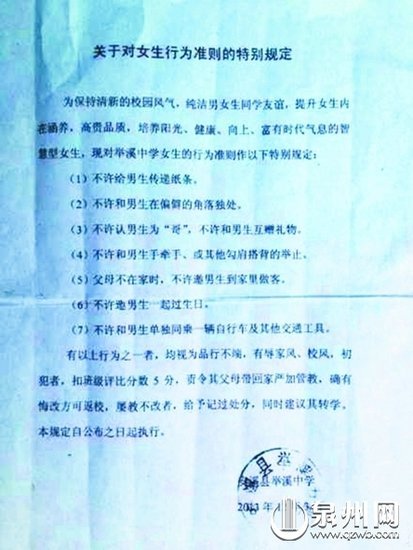 关于对女生行为准则的特别规定
为保持清新的校园风气，纯洁男女生同学友谊，提升女生内
在涵养，高贵品质，培养阳光、健康、向上、富有时代气息的智
慧型女生，现对举溪中学女生的行为准则作以下特别规定：
（1）不许给男生传递纸条。
（2）不许和男生在偏僻的角落独处。
（3）不许认男生为“哥”，不许和男生互赠礼物。
（4）不许和男生手牵手、或其他勾肩搭背的举止。
（5）父母不在家时，不许邀男生到家里做客。
（6）不许邀男生一起过生日。
（7）不许和男生单独同乘一辆自行车及其他交通工具。
有以上行为之一者，均视为品行不端，有辱家风、校风，初
犯者，扣班级评比分数 5 分，责令其父母带回家严加管教，确有
悔改方可返校，屡教不改者，给予记过处分，同时建议其转学。
本规定自公布之日起执行。
县举溪中学
泉州网
www.qzwb.com